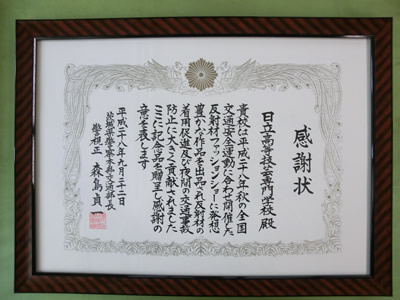 感謝状
日立高等技芸専門学校 殿
貴校は平成二十八年秋の全国
交通安全運動に合わせ開催した
反射材ファッションショーに発想
豊かな作品を出品され反射材の
着用促進及び夜間の交通事故
防止に大きく貢献されました
ここに記念品を贈呈し感謝の
意を表します
平成二十八年九月二十二日
茨城県警察本部交通部長
警視正 森島貞一